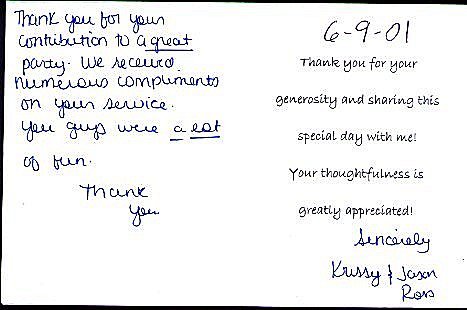 Thank you for your
contribution to a great
party. We received
numerous compliments
on your service.
You guys were a lot
of fun.
Thank
you
6-9-01
Thank you for your
generosity and sharing this
special day with me!
Your thoughtfulness is
greatly appreciated!
Sincerely
Krissy & Jason
Ross